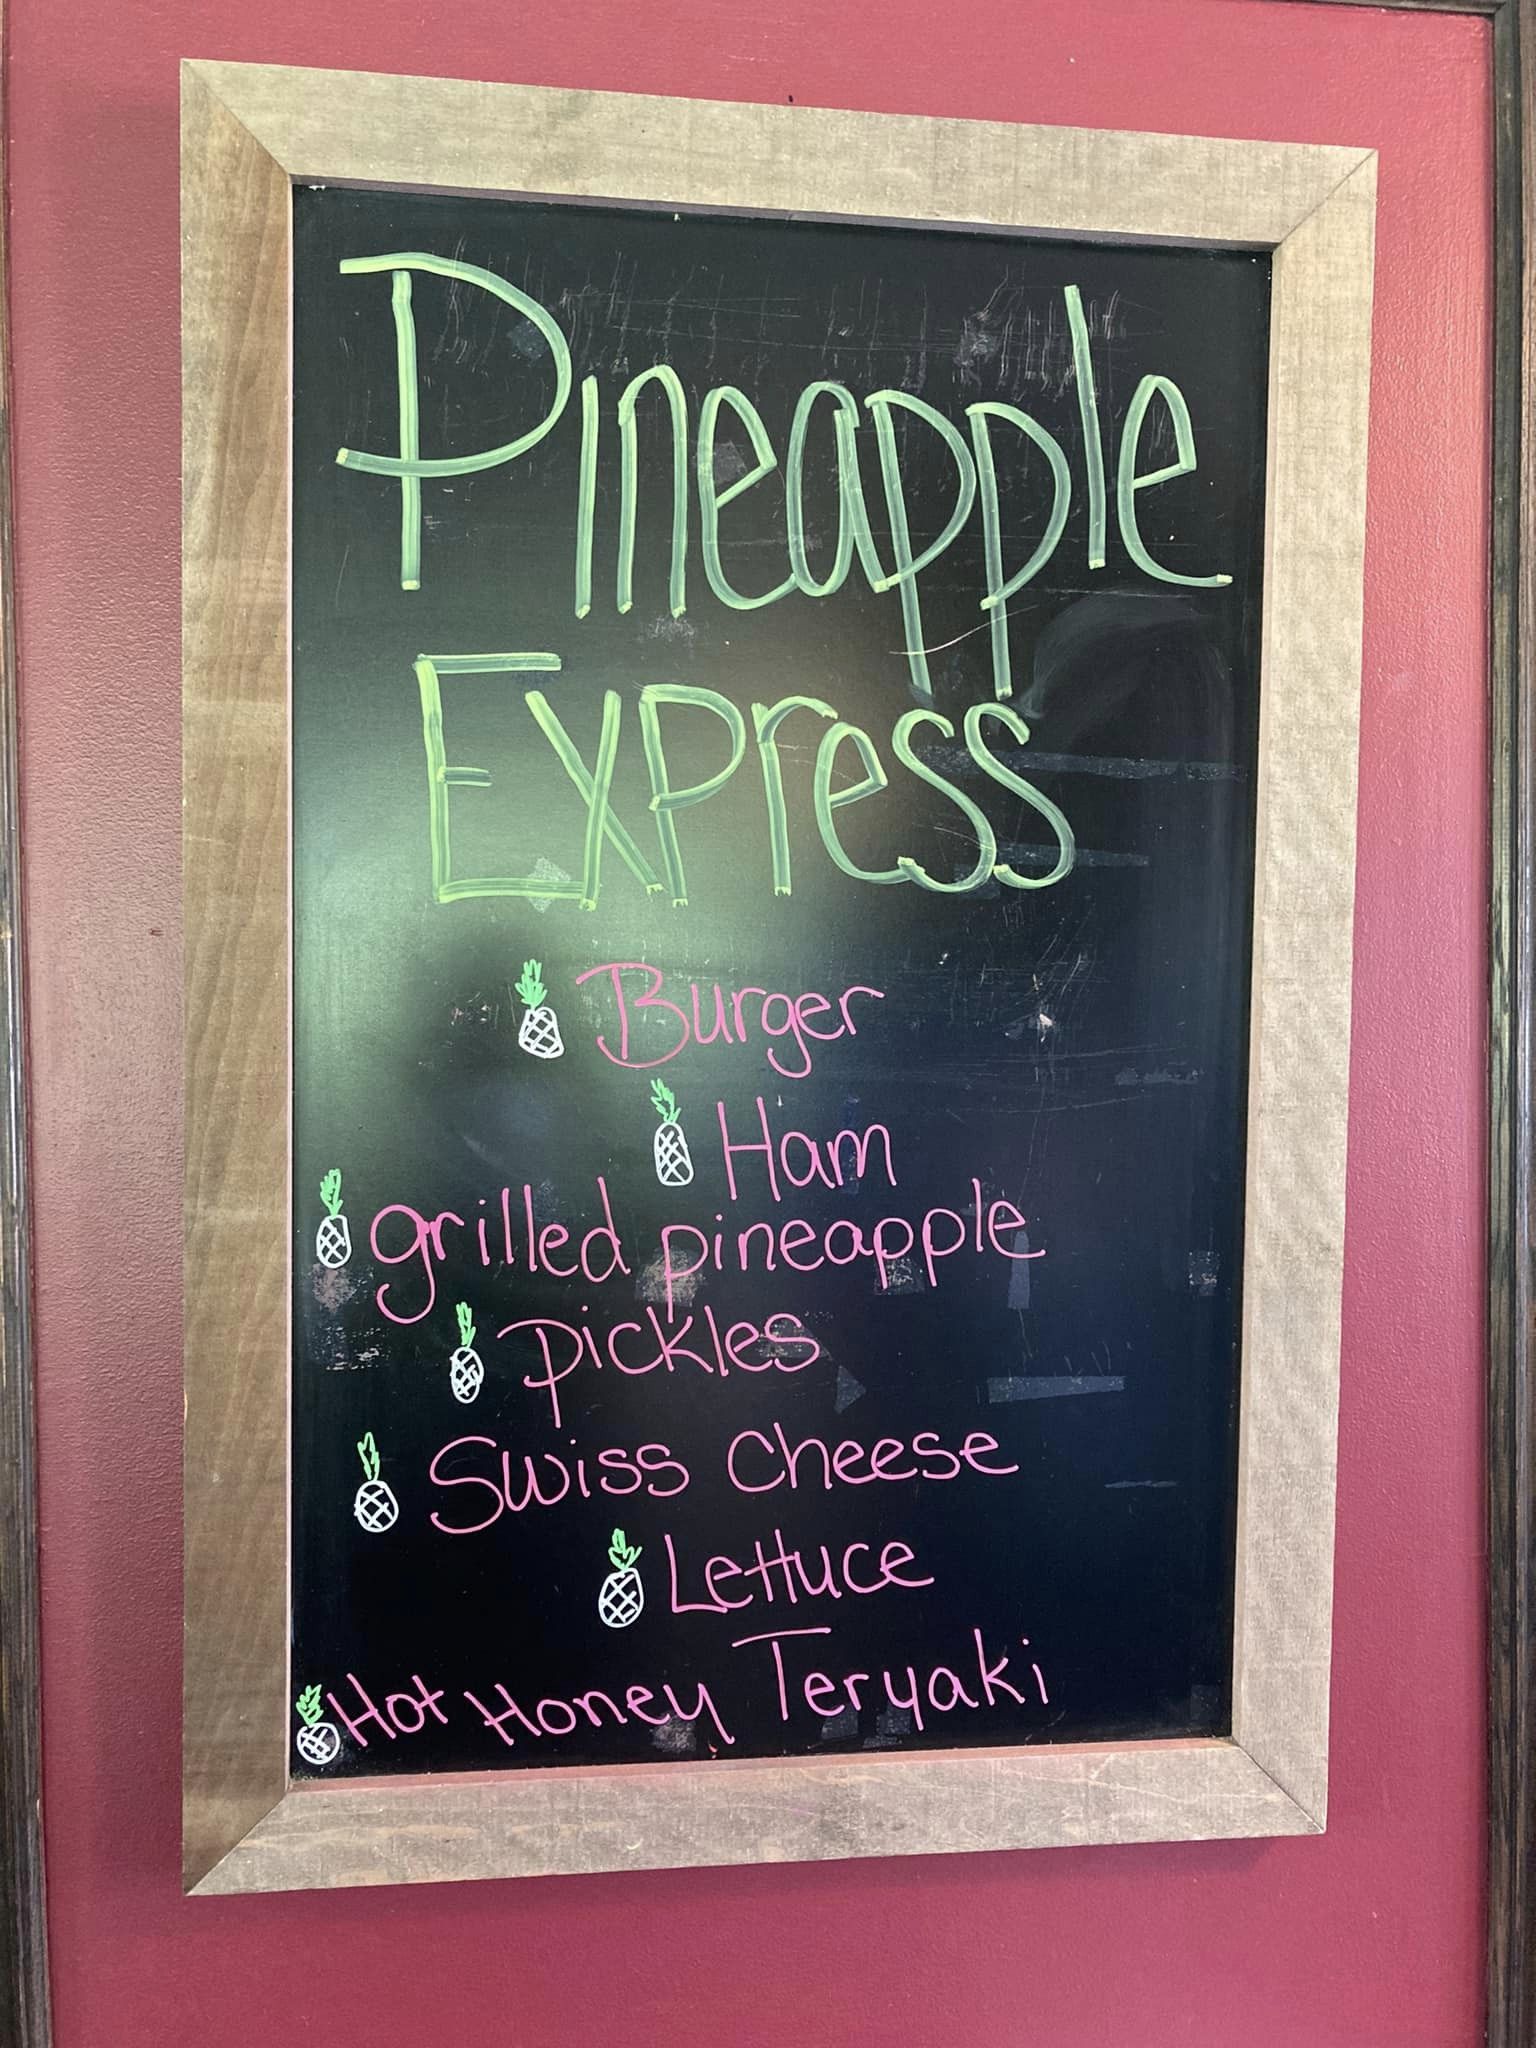 Pineapple
Express
Burger
Ham
grilled pineapple
pickles
Swiss Cheese
Lettuce
Hot Honey Teryaki